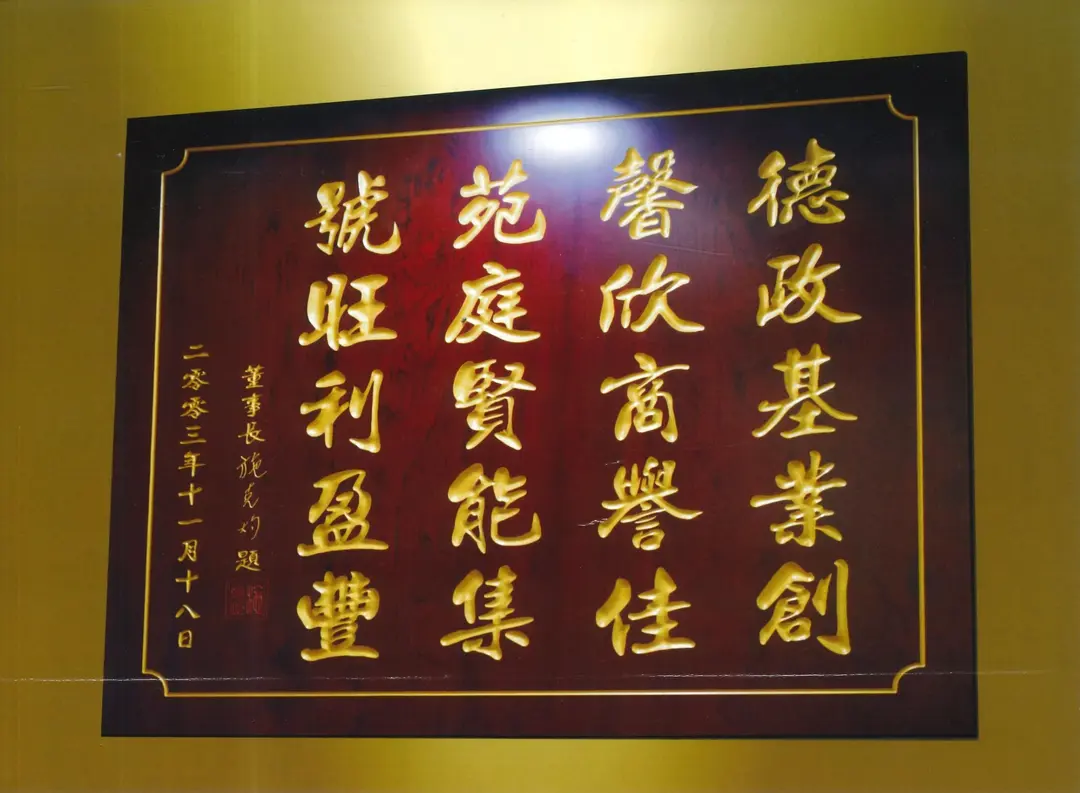 德政基業創
馨欣商譽佳
苑庭賢能集
號旺利盈豐
董事長施克灼題
二零零三年十一月十八日